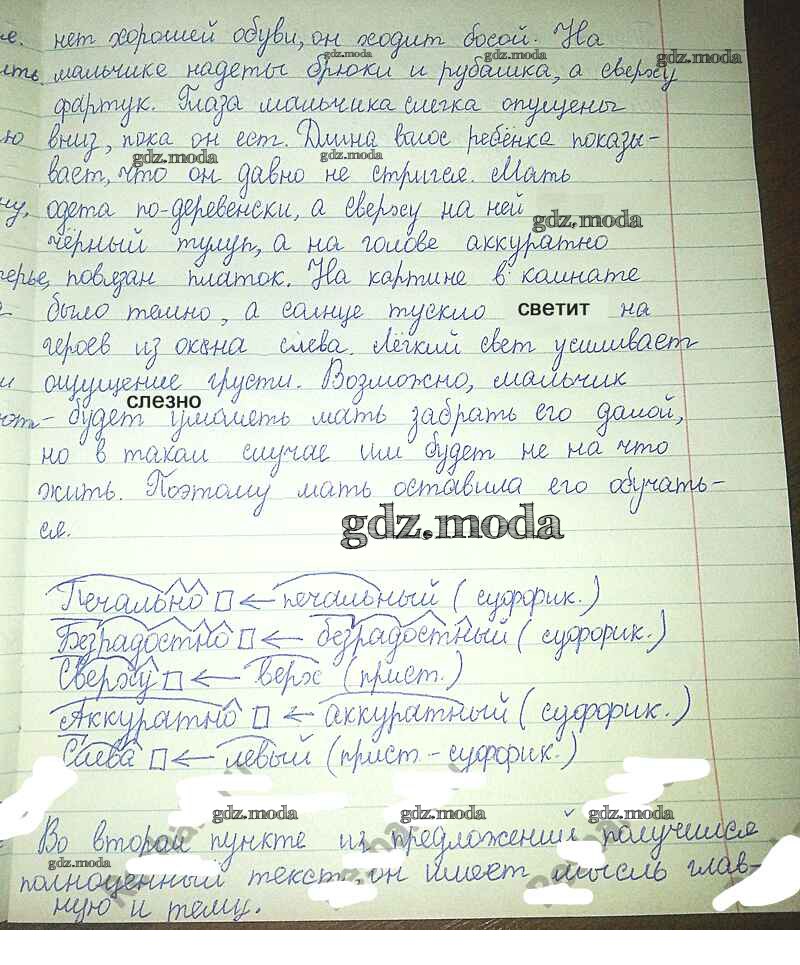 е. нет хорошей обуви, он ходит босой. На
gdz.moda gdz.moda
ить мальчике надеты брюки и рубашка, а сверху
фартук. Глаза мальчика слегка опущены
ю вниз, пока он ест. Длина волос ребёнка показы-
gdz.moda gdz.moda
вает, что он давно не стригся. Мать
ну, одета по-деревенски, а сверху на ней
gdz.moda
чёрный тулуп, а на голове аккуратно
герье, повязан платок. На картине в комнате
было темно, а солнце тускло светит на
героев из окна слева. Лёгкий свет усиливает
и ощущение грусти. Возможно, мальчик
слезно
- будет умолять мать забрать его домой,
но в таком случае им будет не на что
жить. Поэтому мать оставила его обучать-
ся.
gdz.moda
Печально □ ← печальный (суффорик.)
Безрадостно □ ← безрадостный (суффорик.)
Сверху □ ← верх (прист.)
Аккуратно □ ← аккуратный (суффорик.)
Слева □ ← левый (прист-суффорик.)
gdz.moda gdz.moda gdz.moda
Во втором пункте из предложений получился
gdz.moda
полноценный текст, он имеет мысль глав-
ную и тему.